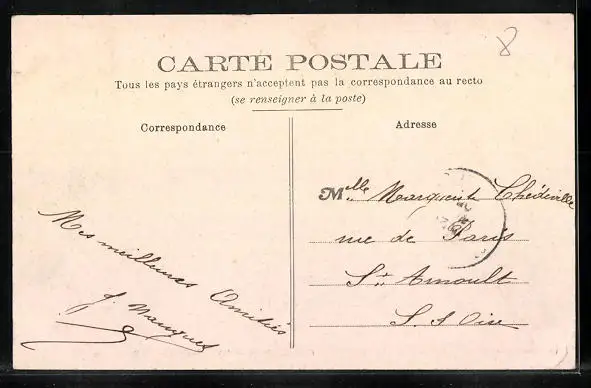 8
CARTE POSTALE
Tous les pays étrangers n'acceptent pas la correspondance au recto
(se renseigner à la poste)
Correspondance
Adresse
Mes meilleures Amitiés
J.
Mlle Marguerite Chédeville
rue de Paris
St. Arnoult
S. & Oise